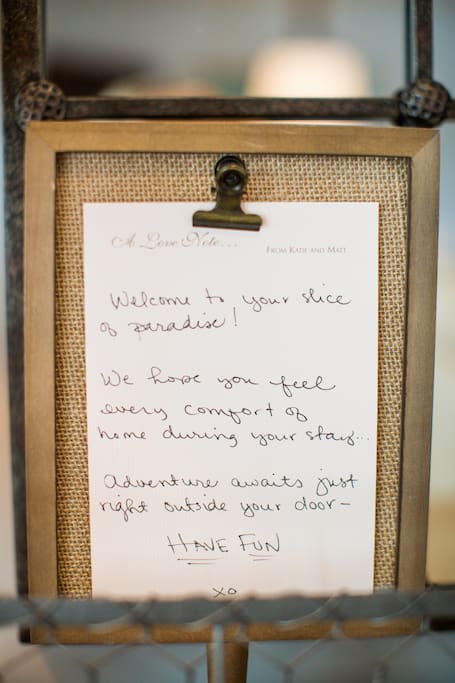 A Love Note...
FROM KATIE AND MATT
Welcome to your slice
of paradise!
We hope you feel
every comfort of
home during your stay...
Adventure awaits just
right outside your door-
HAVE FUN
XO